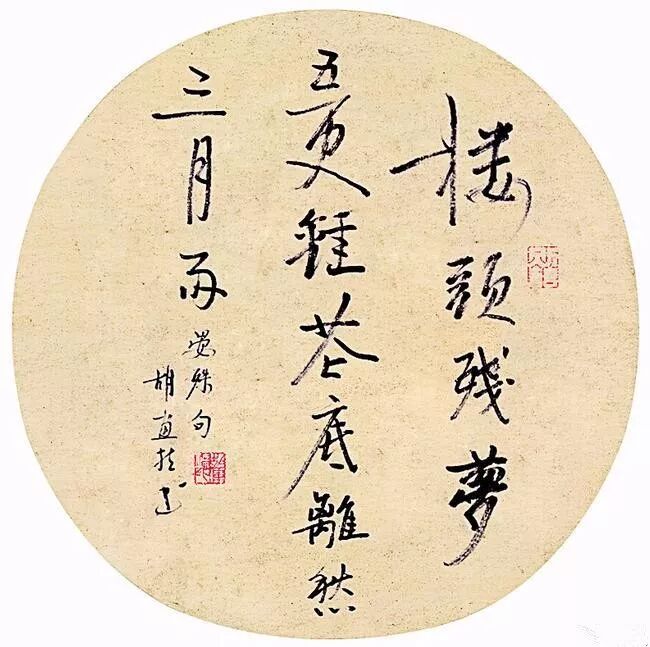 樓頭殘夢
五更鐘花底離愁
三月雨
晏殊句
胡直